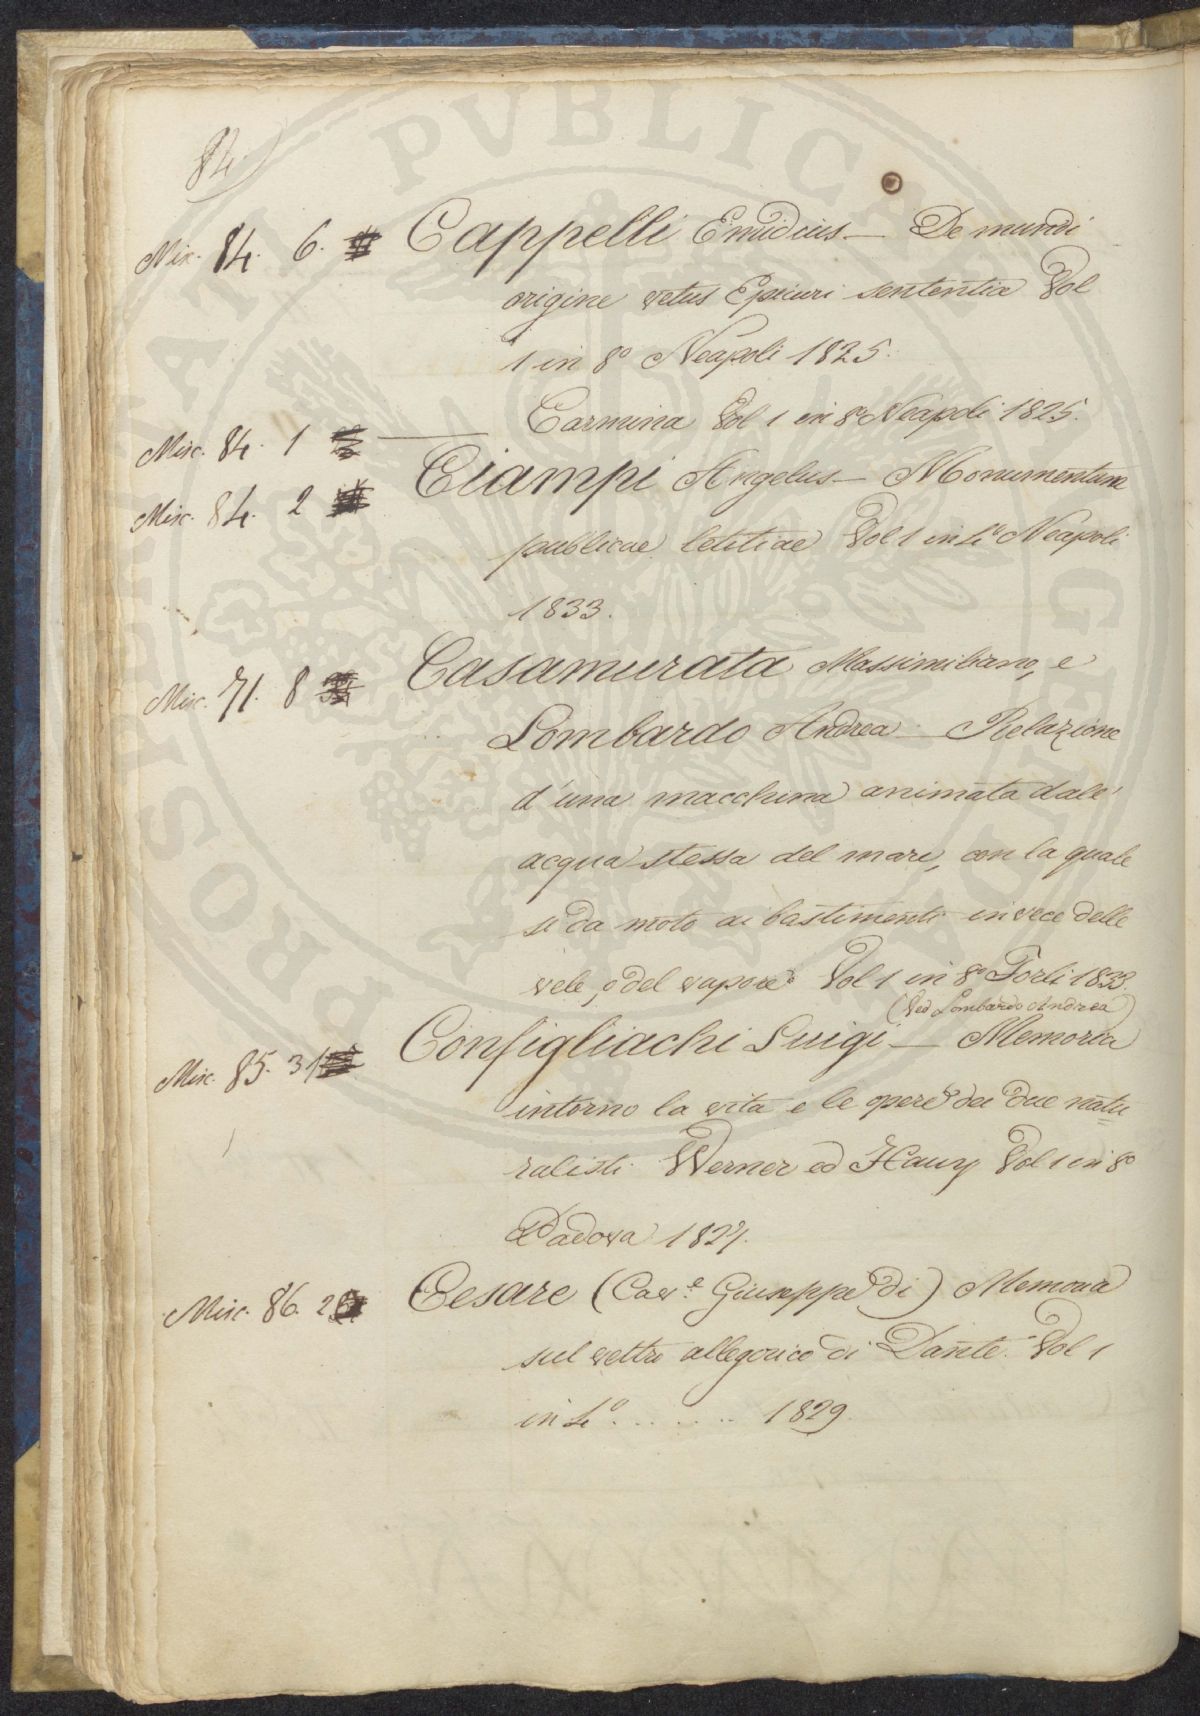 84.
Misc. 84. 6. Cappelli Emidius — De mundi
origine vetus Epicuri sententia Vol
1 in 8º Neapoli 1825.
Misc. 84. 1 ——— Carmina Vol 1 in 8º Neapoli 1825.
Misc. 84. 2 Ciampi Angelus — Monumentum
publicae letitiae Vol 1 in 4º Neapoli
1833.
Misc. 71. 8 Casamurata Massimiliano, e
Lombardo Andrea — Relazione
d'una macchina animata dale'
acqua stessa del mare, con la quale
si da moto ai bastimenti invece delle
vele, o del vapore Vol 1 in 8º Forli 1833.
(Ved Lombardo Andrea)
Misc. 85. 31 Configliachi Luigi — Memoria
intorno la vita e le opere dei due natu=
ralisti Werner ed Hauy Vol 1 in 8º
Padova 1827.
Misc. 86. 2 Cesare (Cav.e Giuseppe di) Memoria
sul veltro allegorico di Dante. Vol 1
in 4º . . . . . . 1829.
PROSPERITATI PVBLICAE AVGENDAE